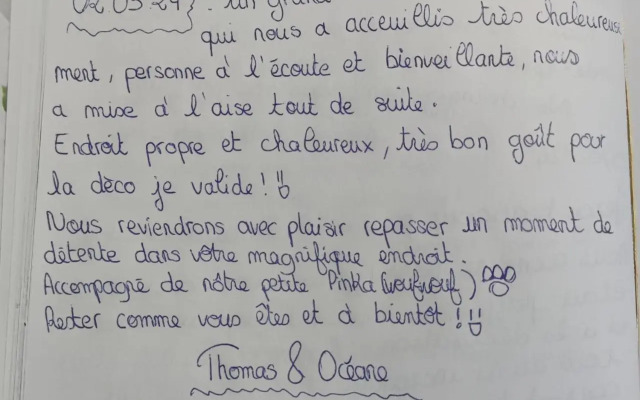 02.03.24 : un grand
qui nous a acceuillis très chaleureuse
ment, personne à l'écoute et bienveillante, nous
a mise à l'aise tout de suite.
Endroit propre et chaleureux, très bon goût pour
la dèco je valide!
Nous reviendrons avec plaisir repasser un moment de
détente dans vôtre magnifique endroit.
Accompagné de nôtre petite Pinka (woufwouf)
Rester comme vous êtes et à bientôt!
Thomas & Océane